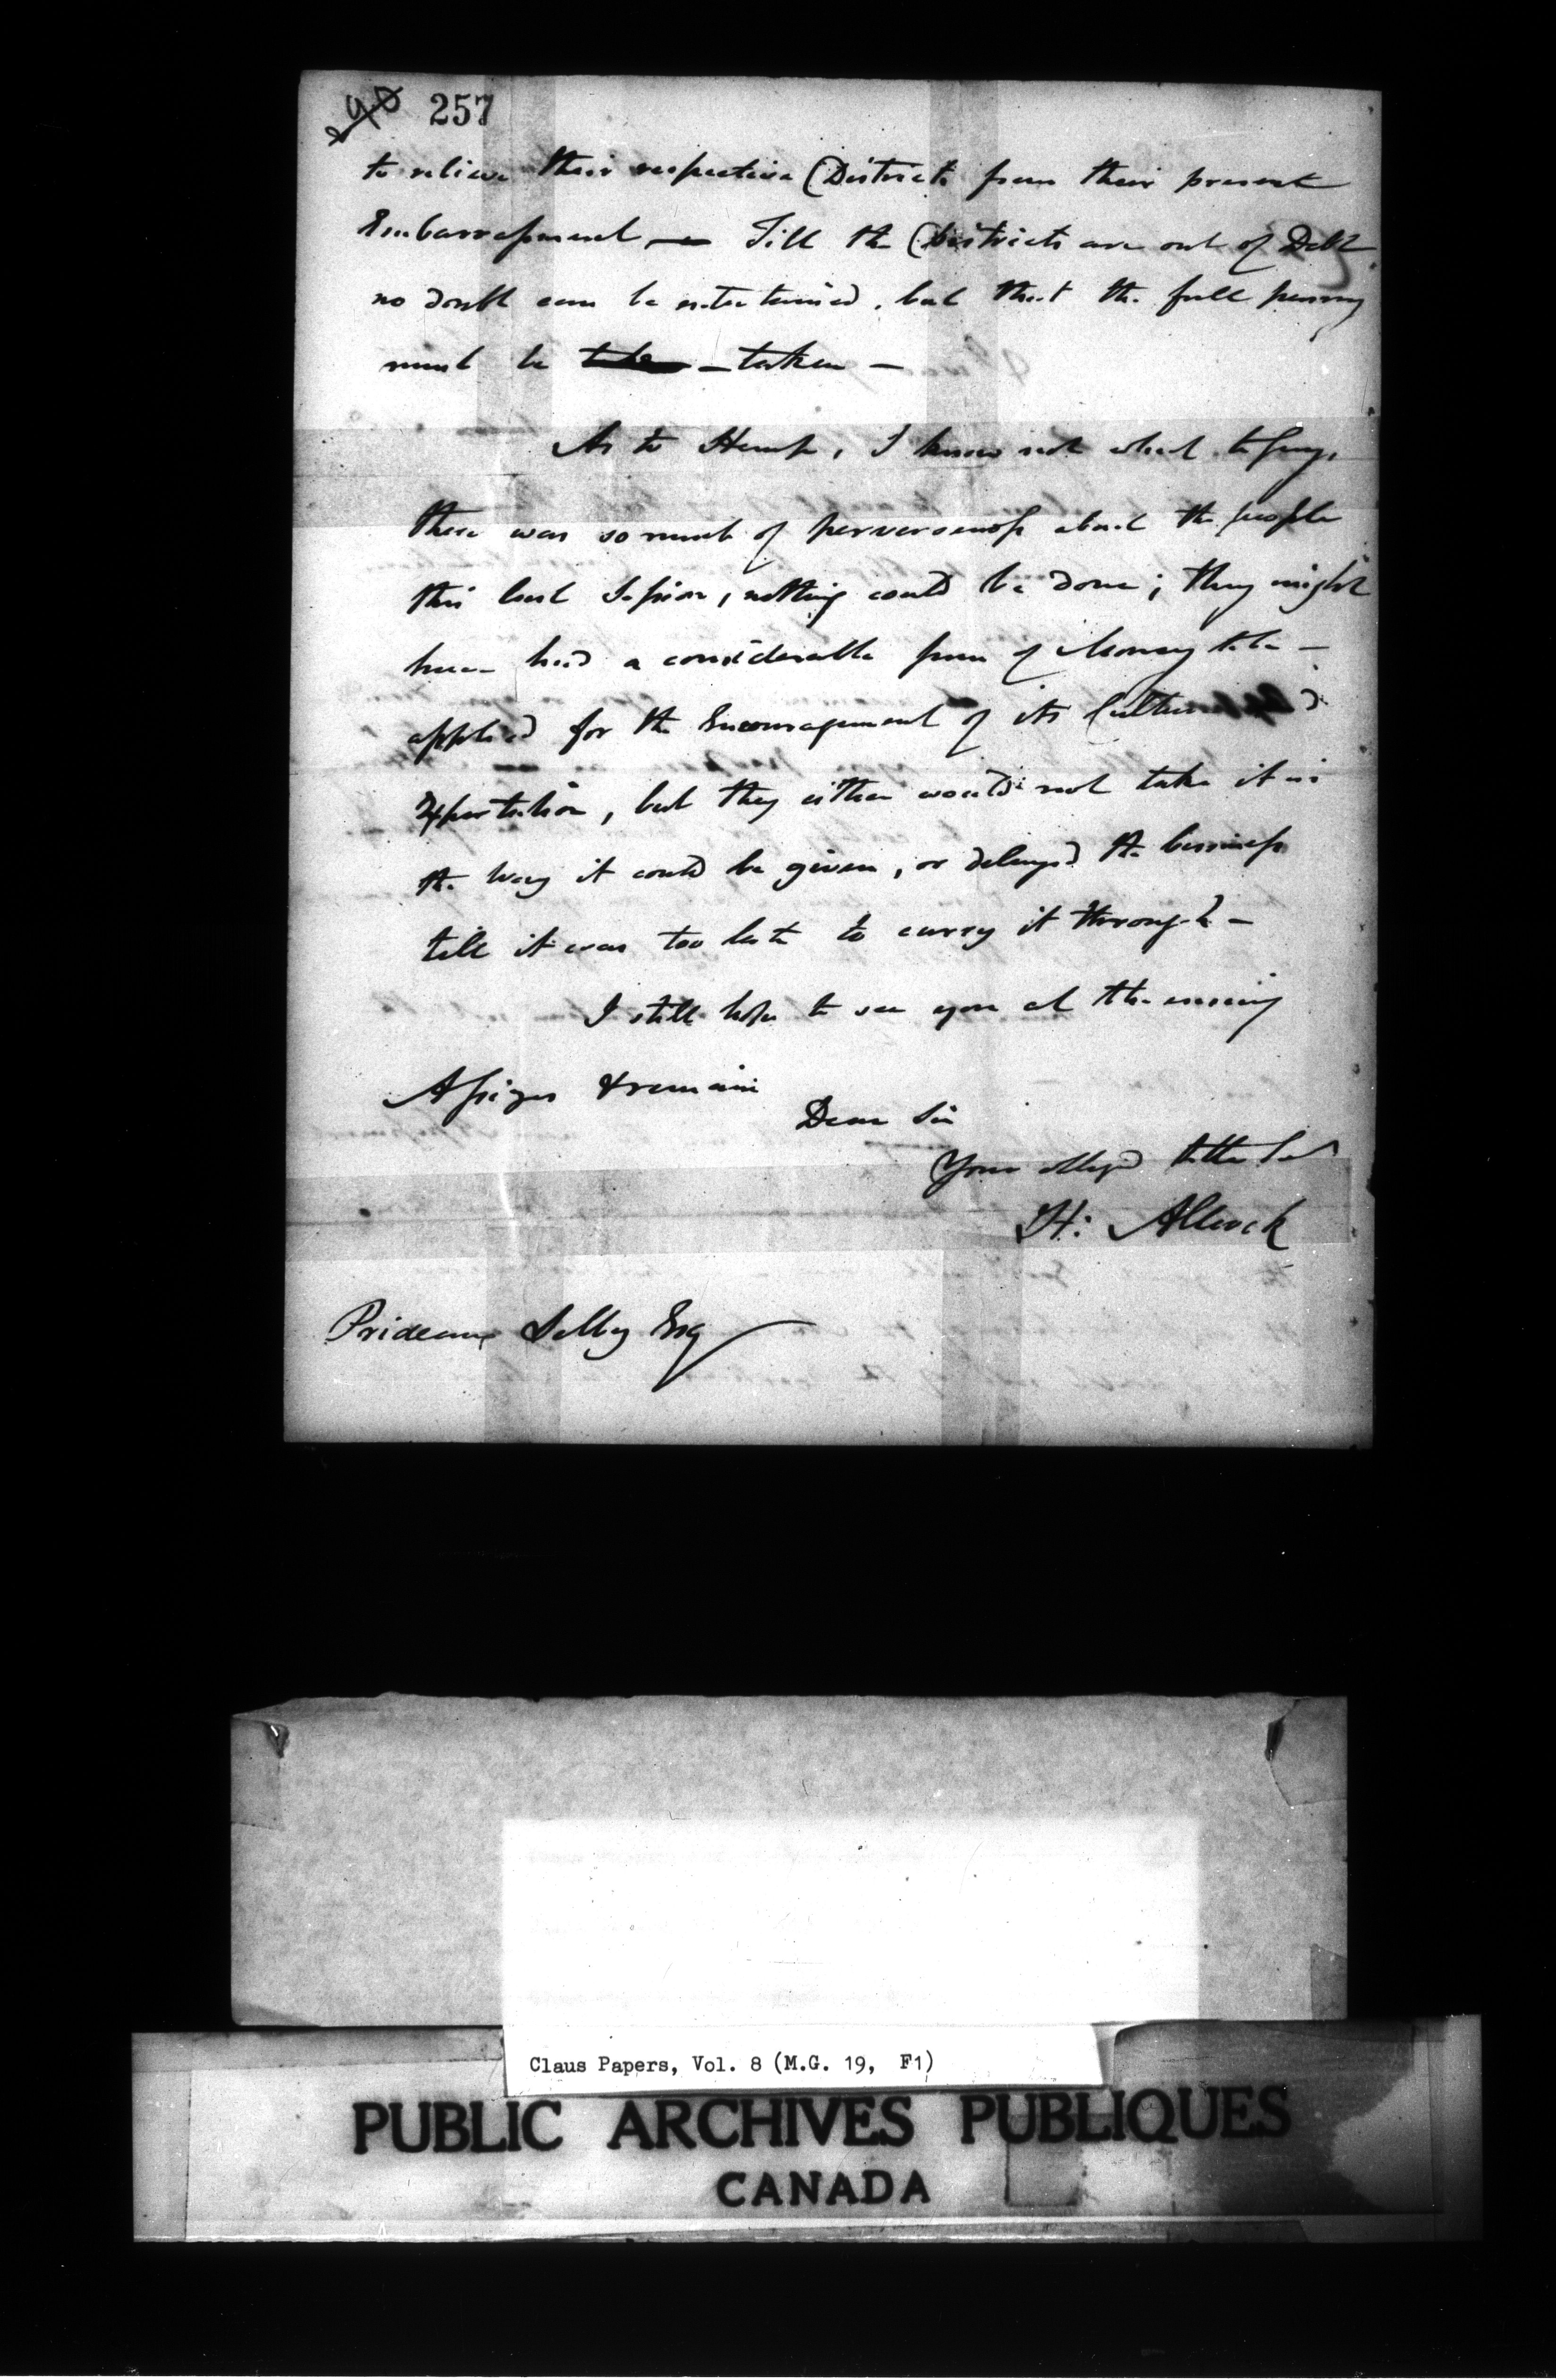 290 257
to relieve their respective Districts from their present
Embarrassment — Till the Districts are out of Debt
no doubt can be entertained, but that the full penny
must be taken —
As to Hemp, I know not what to say,
there was so much of perverseness about the people
this last Session, nothing could be done; they might
have had a considerable sum of Money to be —
applied for the Encouragement of its Culture
Exportation, but they either would not take it in
the way it could be given, or delayed the business
till it was too late to carry it through —
I still hope to see you at the ensuing
Assizes & remain
Dear Sir
Your obliged
H: Allcock
Prideaux Selby Esq
Claus Papers, Vol. 8 (M.G. 19, F1)
PUBLIC ARCHIVES PUBLIQUES
CANADA